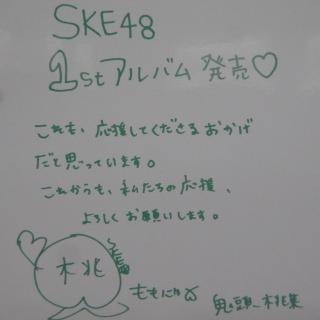 SKE48
1stアルバム発売♡
これも、応援してくださるおかげ
だと思っています。
これからも、私たちの応援、
よろしくお願いします。
桃
ももにゃ
鬼頭 桃菜